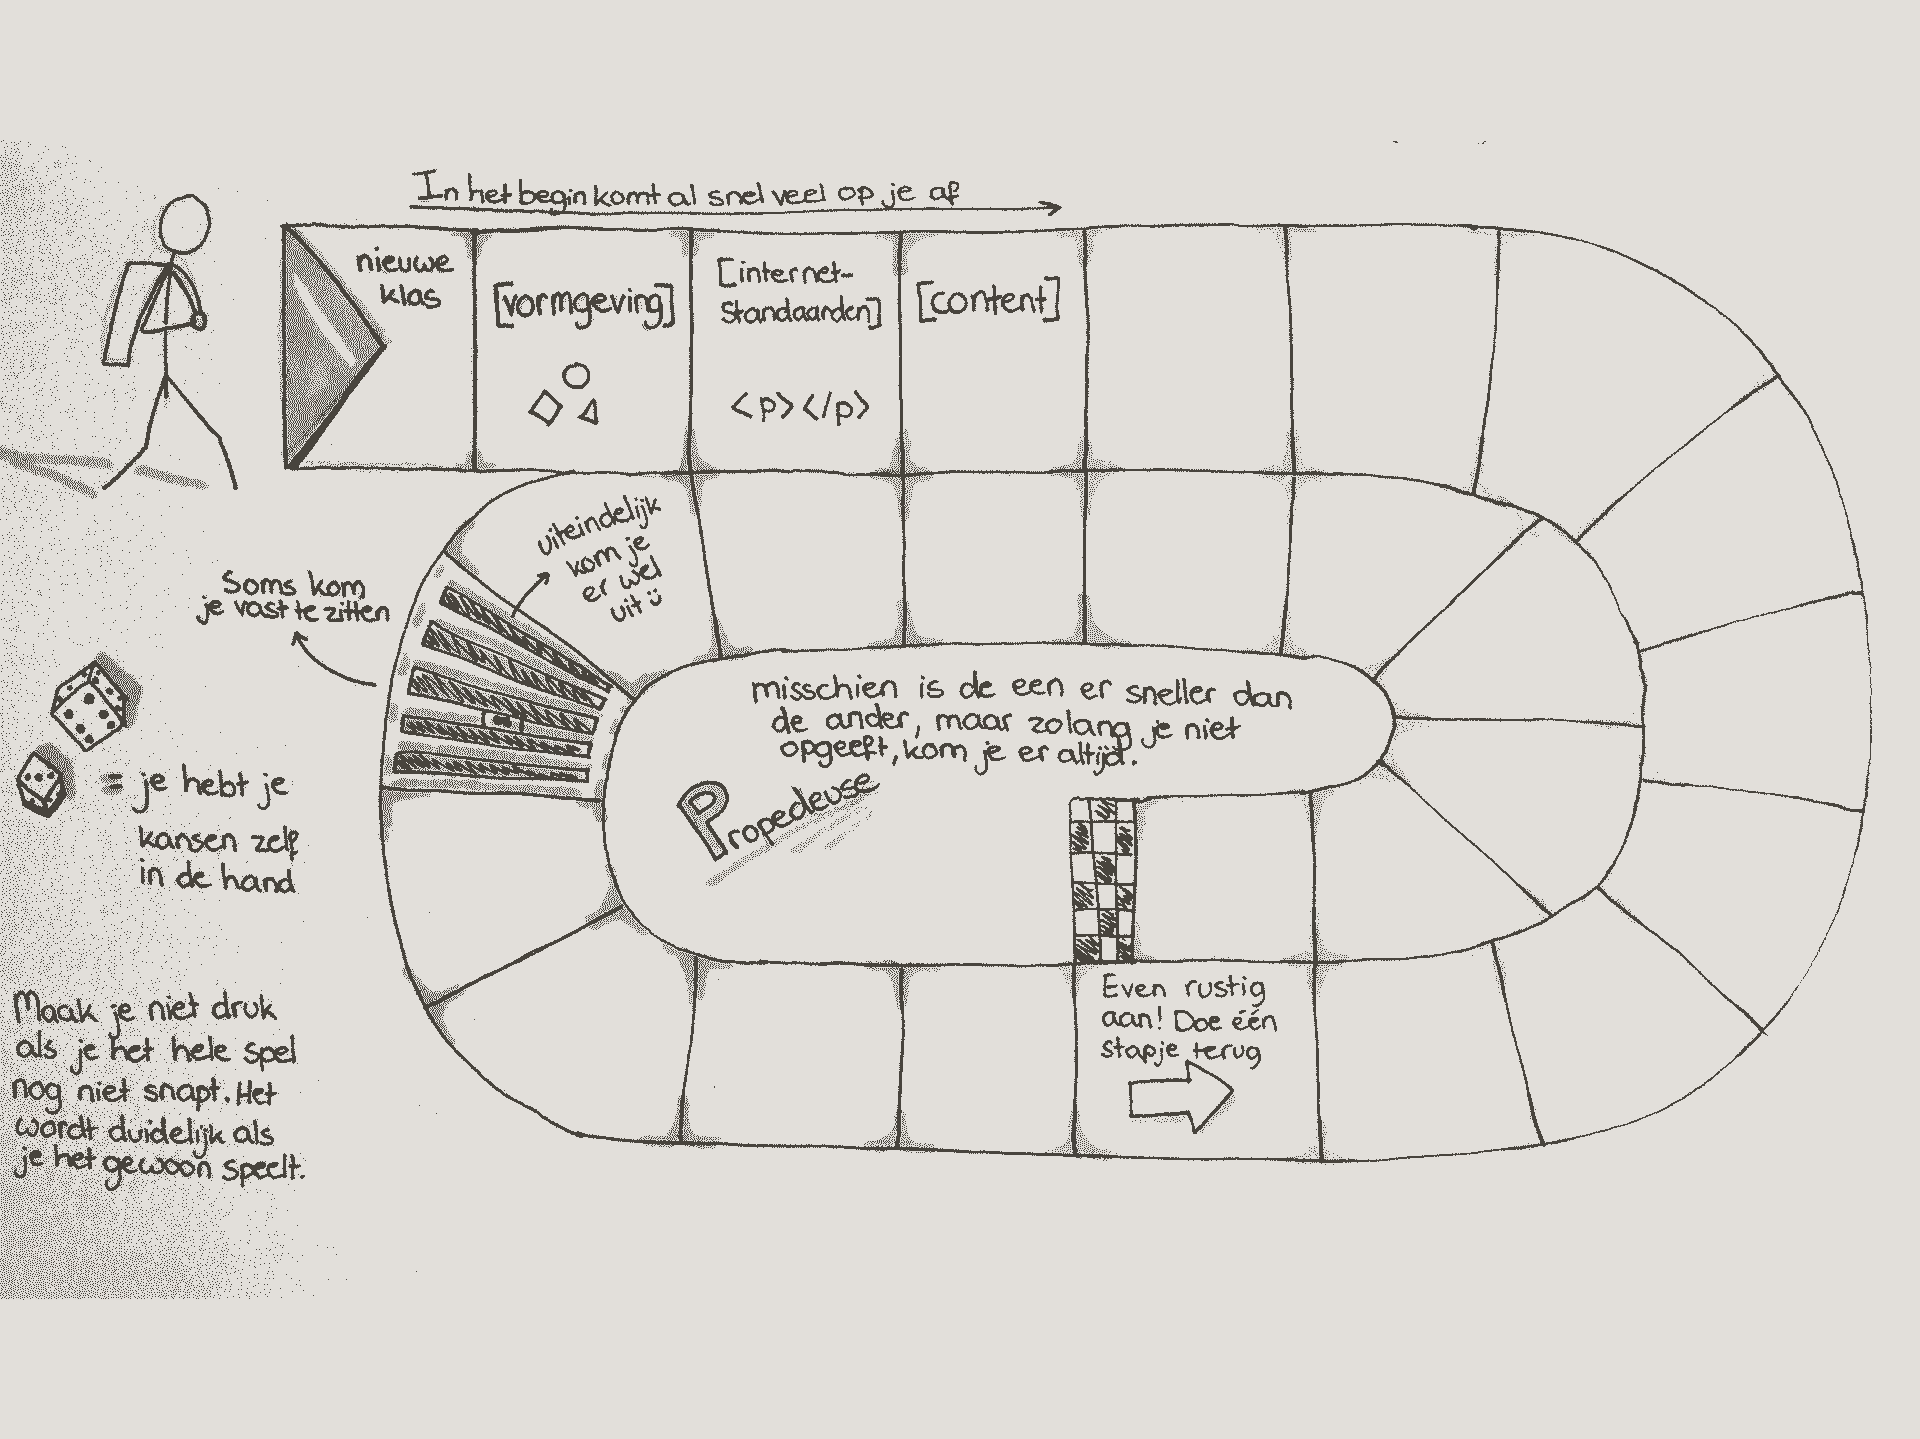 In het begin komt al snel veel op je af
nieuwe
klas
[vormgeving]
[internet-
Standaarden]
<p></p>
[content]
uiteindelijk
kom je
er wel
uit ü
Soms kom
je vast te zitten
misschien is de een er sneller dan
de ander, maar zolang je niet
opgeeft, kom je er altijd.
Propedeuse
= je hebt je
kansen zelf
in de hand
Even rustig
aan! Doe één
stapje terug
Maak je niet druk
als je het hele spel
nog niet snapt. Het
wordt duidelijk als
je het gewoon speelt.